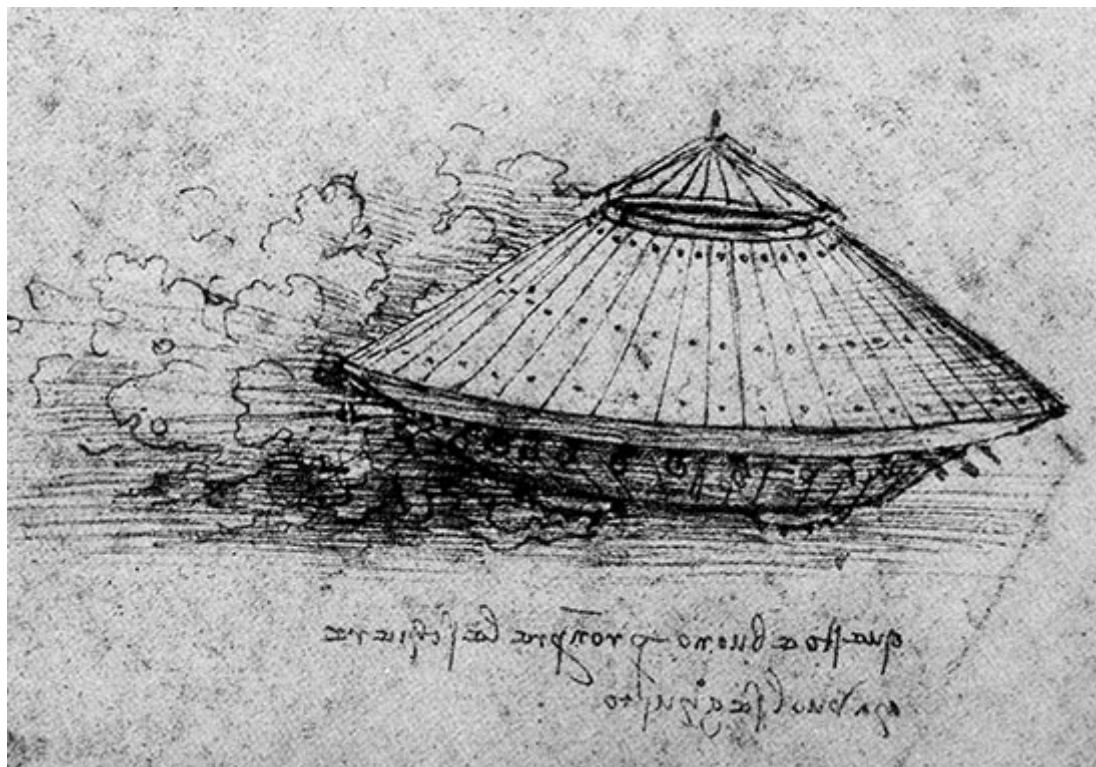 questo e buono p rōpre le schiere
ma vuol seguito